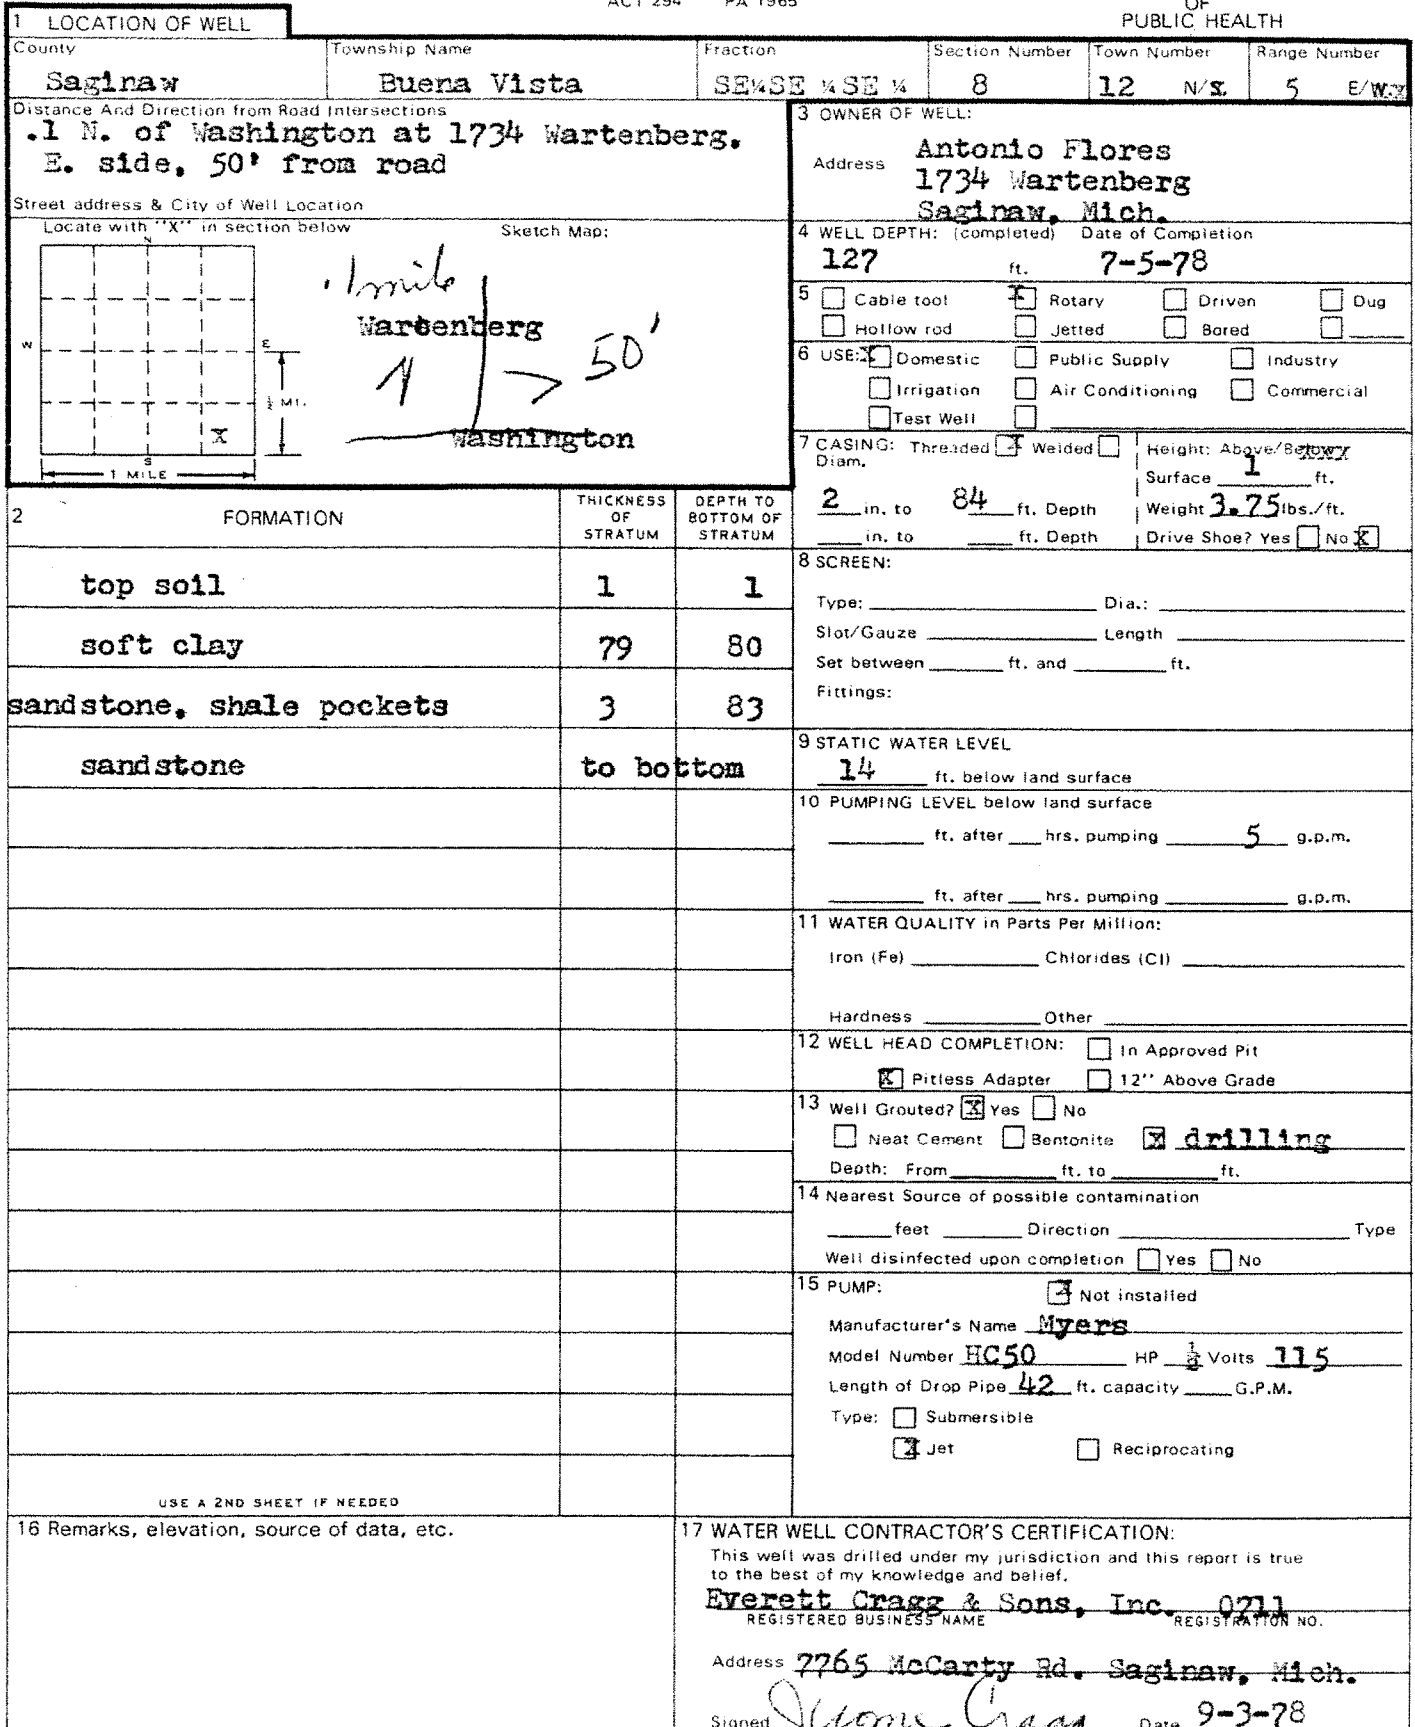 ACT 294 PA 1965
OF
PUBLIC HEALTH
1 LOCATION OF WELL
County
Saginaw
Township Name
Buena Vista
Fraction
SE¼SE ¼ SE ¼
Section Number
8
Town Number
12 N/S.
Range Number
5 E/W.
Distance And Direction from Road Intersections
.1 N. of Washington at 1734 Wartenberg.
E. side, 50' from road
Street address & City of Well Location
Locate with "X" in section below
Sketch Map:
N
W
E
S
X
½ MI.
1 MILE
.1 mile
Wartenberg
50'
Washington
2 FORMATION
THICKNESS OF STRATUM
DEPTH TO BOTTOM OF STRATUM
top soil 1 1
soft clay 79 80
sandstone, shale pockets 3 83
sandstone to bottom
USE A 2ND SHEET IF NEEDED
3 OWNER OF WELL:
Antonio Flores
Address 1734 Wartenberg
Saginaw, Mich.
4 WELL DEPTH: (completed) Date of Completion
127 ft. 7-5-78
5 Cable tool X Rotary Driven Dug
Hollow rod Jetted Bored
6 USE: X Domestic Public Supply Industry
Irrigation Air Conditioning Commercial
Test Well
7 CASING: Threaded X Welded
Diam.
2 in. to 84 ft. Depth
in. to ft. Depth
Height: Above/Below
Surface 1 ft.
Weight 3.75 lbs./ft.
Drive Shoe? Yes No X
8 SCREEN:
Type: Dia.:
Slot/Gauze Length
Set between ft. and ft.
Fittings:
9 STATIC WATER LEVEL
14 ft. below land surface
10 PUMPING LEVEL below land surface
ft. after hrs. pumping 5 g.p.m.
ft. after hrs. pumping g.p.m.
11 WATER QUALITY in Parts Per Million:
Iron (Fe) Chlorides (Cl)
Hardness Other
12 WELL HEAD COMPLETION: In Approved Pit
X Pitless Adapter 12" Above Grade
13 Well Grouted? X Yes No
Neat Cement Bentonite X drilling
Depth: From ft. to ft.
14 Nearest Source of possible contamination
feet Direction Type
Well disinfected upon completion Yes No
15 PUMP: X Not installed
Manufacturer's Name Myers
Model Number HC50 HP ½ Volts 115
Length of Drop Pipe 42 ft. capacity G.P.M.
Type: Submersible
X Jet Reciprocating
16 Remarks, elevation, source of data, etc.
17 WATER WELL CONTRACTOR'S CERTIFICATION:
This well was drilled under my jurisdiction and this report is true
to the best of my knowledge and belief.
Everett Cragg & Sons, Inc. 0711
REGISTERED BUSINESS NAME REGISTRATION NO.
Address 7765 McCarty Rd. Saginaw, Mich.
Signed Date 9-3-78